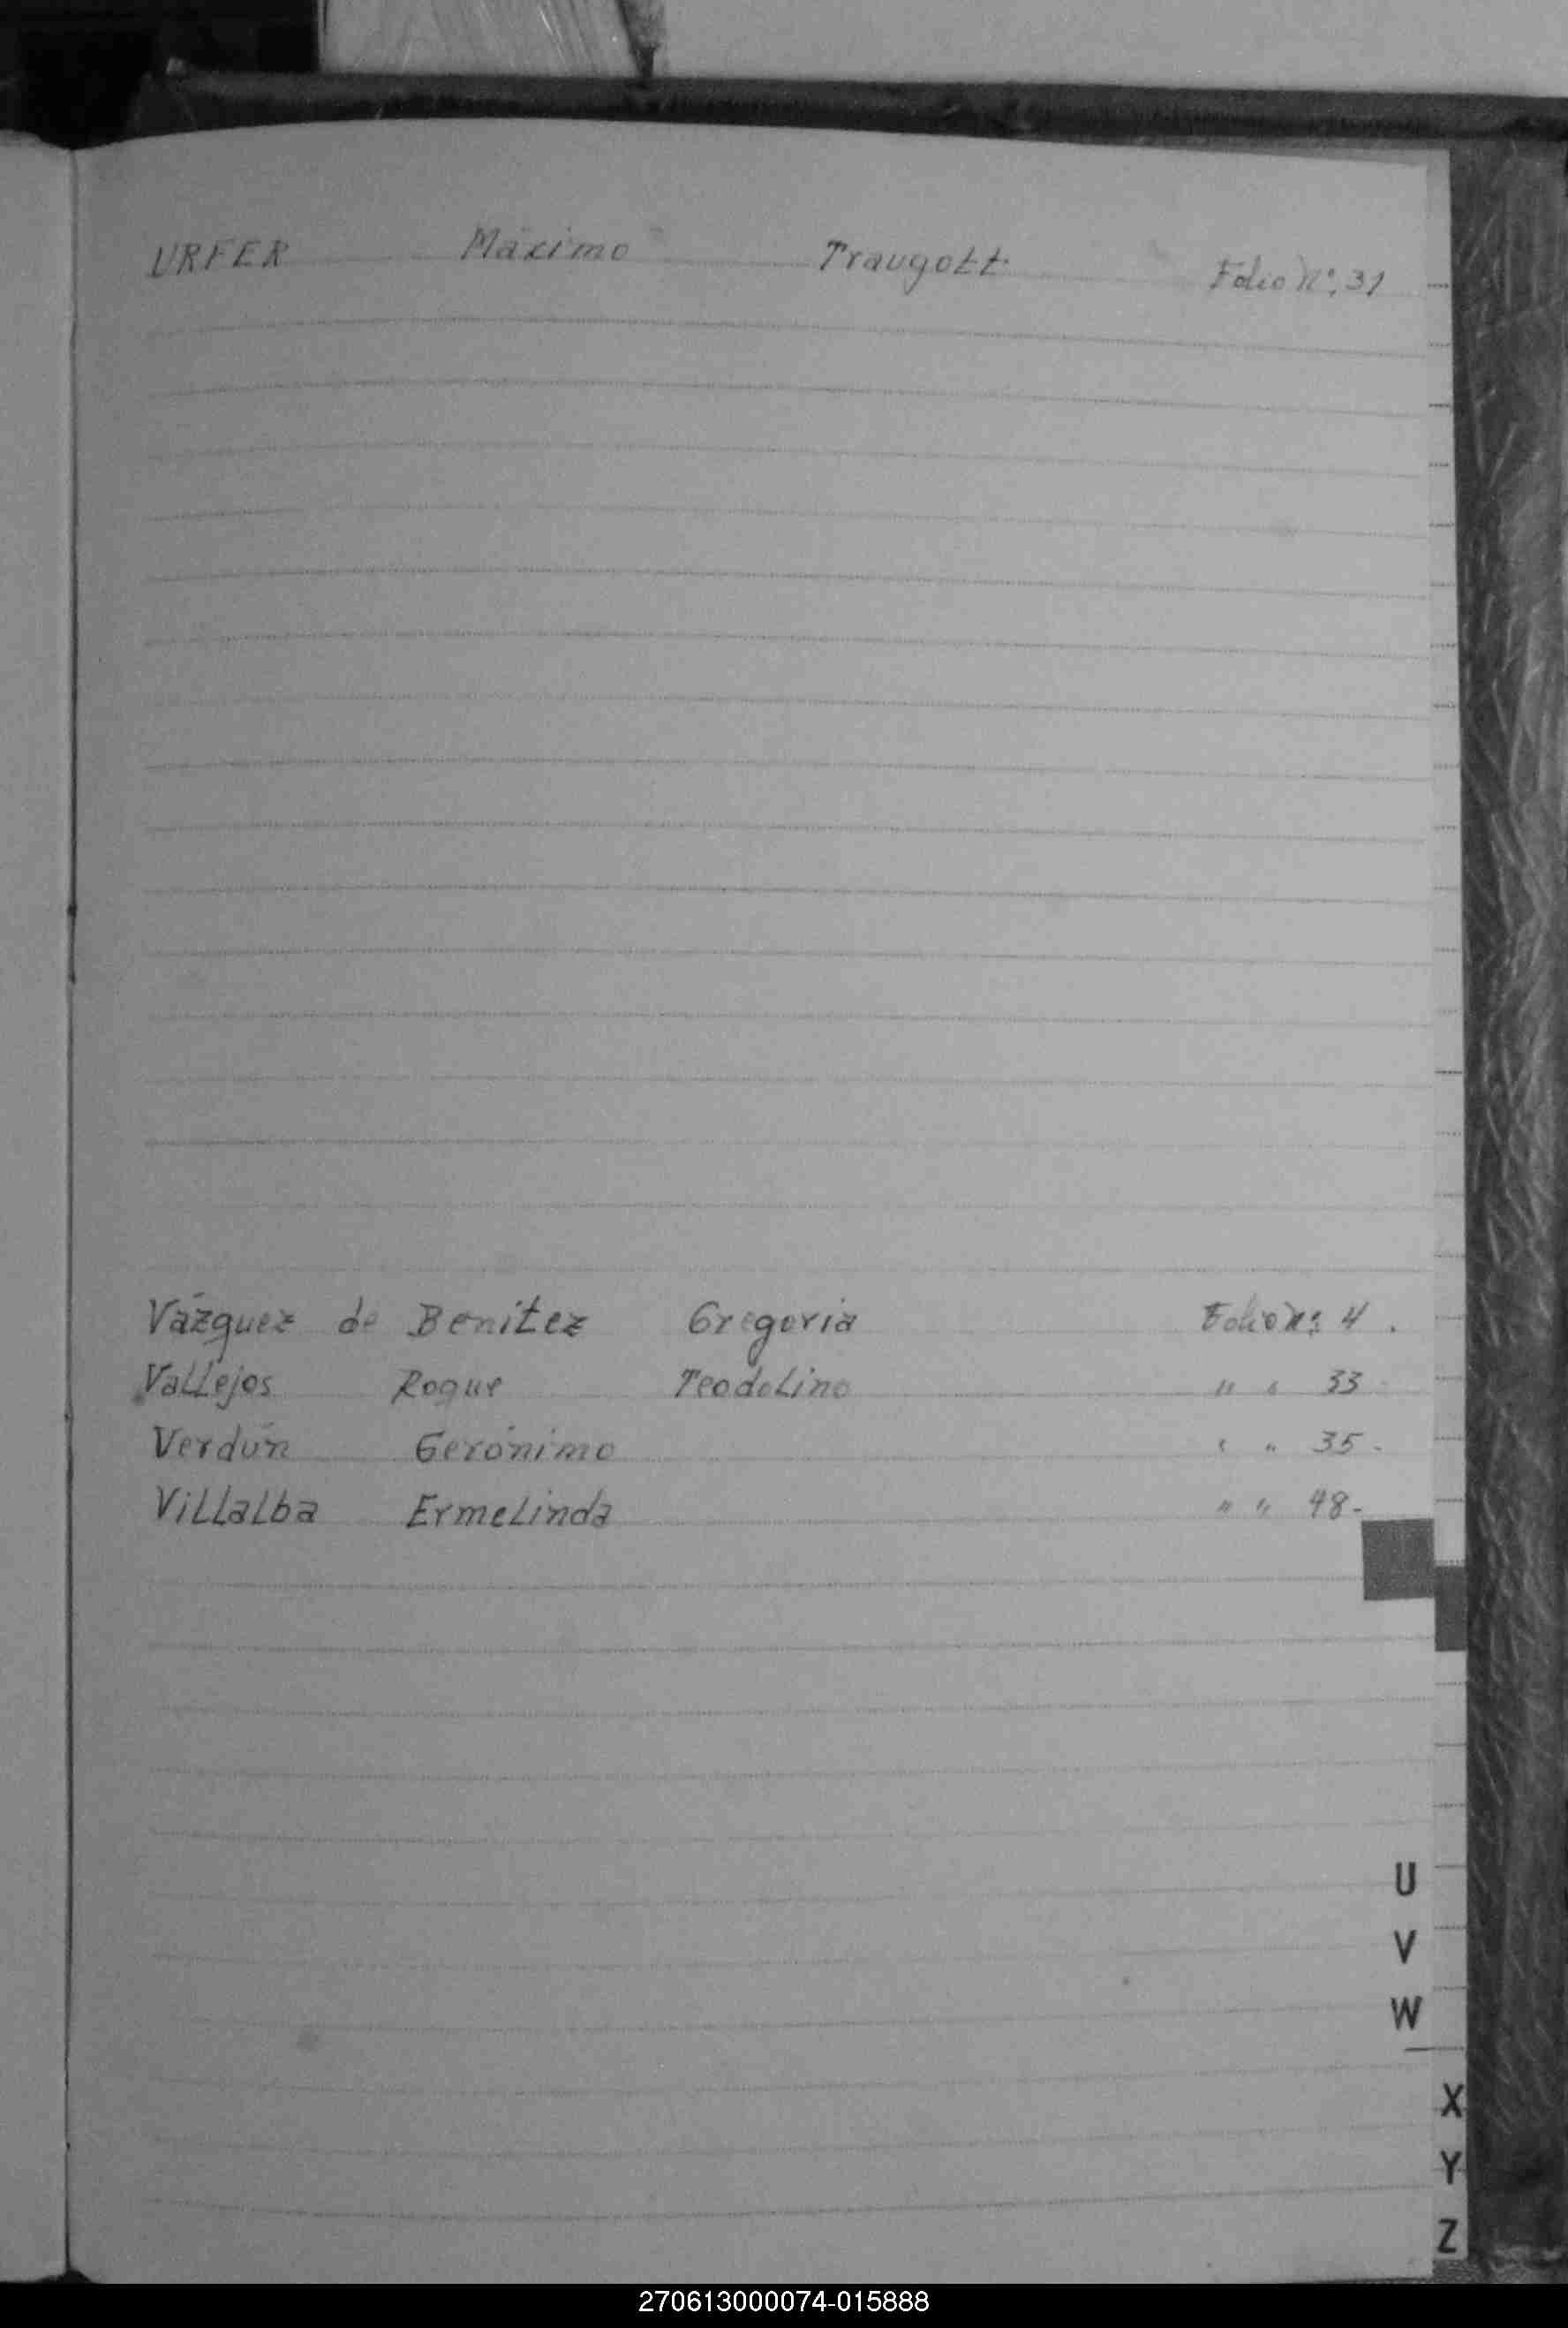 URFER Máximo Traugott Folio Nº. 31
Vázquez de Benítez Gregoria Folio Nº: 4.
Vallejos Roque Teodolino " " 33
Verdún Gerónimo " " 35-
Villalba Ermelinda " " 48-
U
V
W
X
Y
Z
270613000074-015888